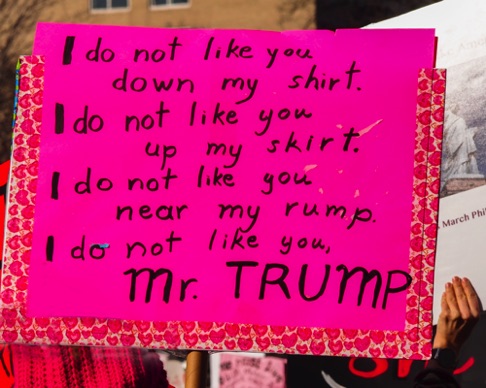 I do not like you
down my shirt.
I do not like you
up my skirt.
I do not like you
near my rump.
I do not like you,
Mr. TRUMP
March Phi